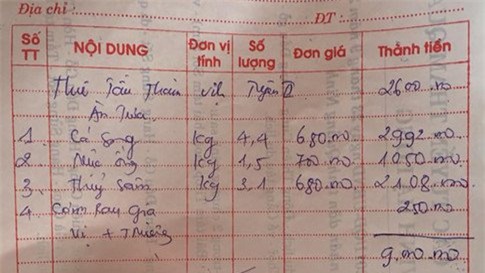 Địa chỉ: ĐT:
Số TT NỘI DUNG Đơn vị tính Số lượng Đơn giá Thành tiền
Thuê Tàu Thăm vịnh Tuyến II 2600.000
Ăn Trưa
1. Cá Song Kg 4,4 680.000 2992.000
2. Mực ống Kg 1,5 700.000 1050.000
3. Kg 3,1 680.000 2108.000
4. Cơm Rau Gia 250.000
Vị +
9.000.000